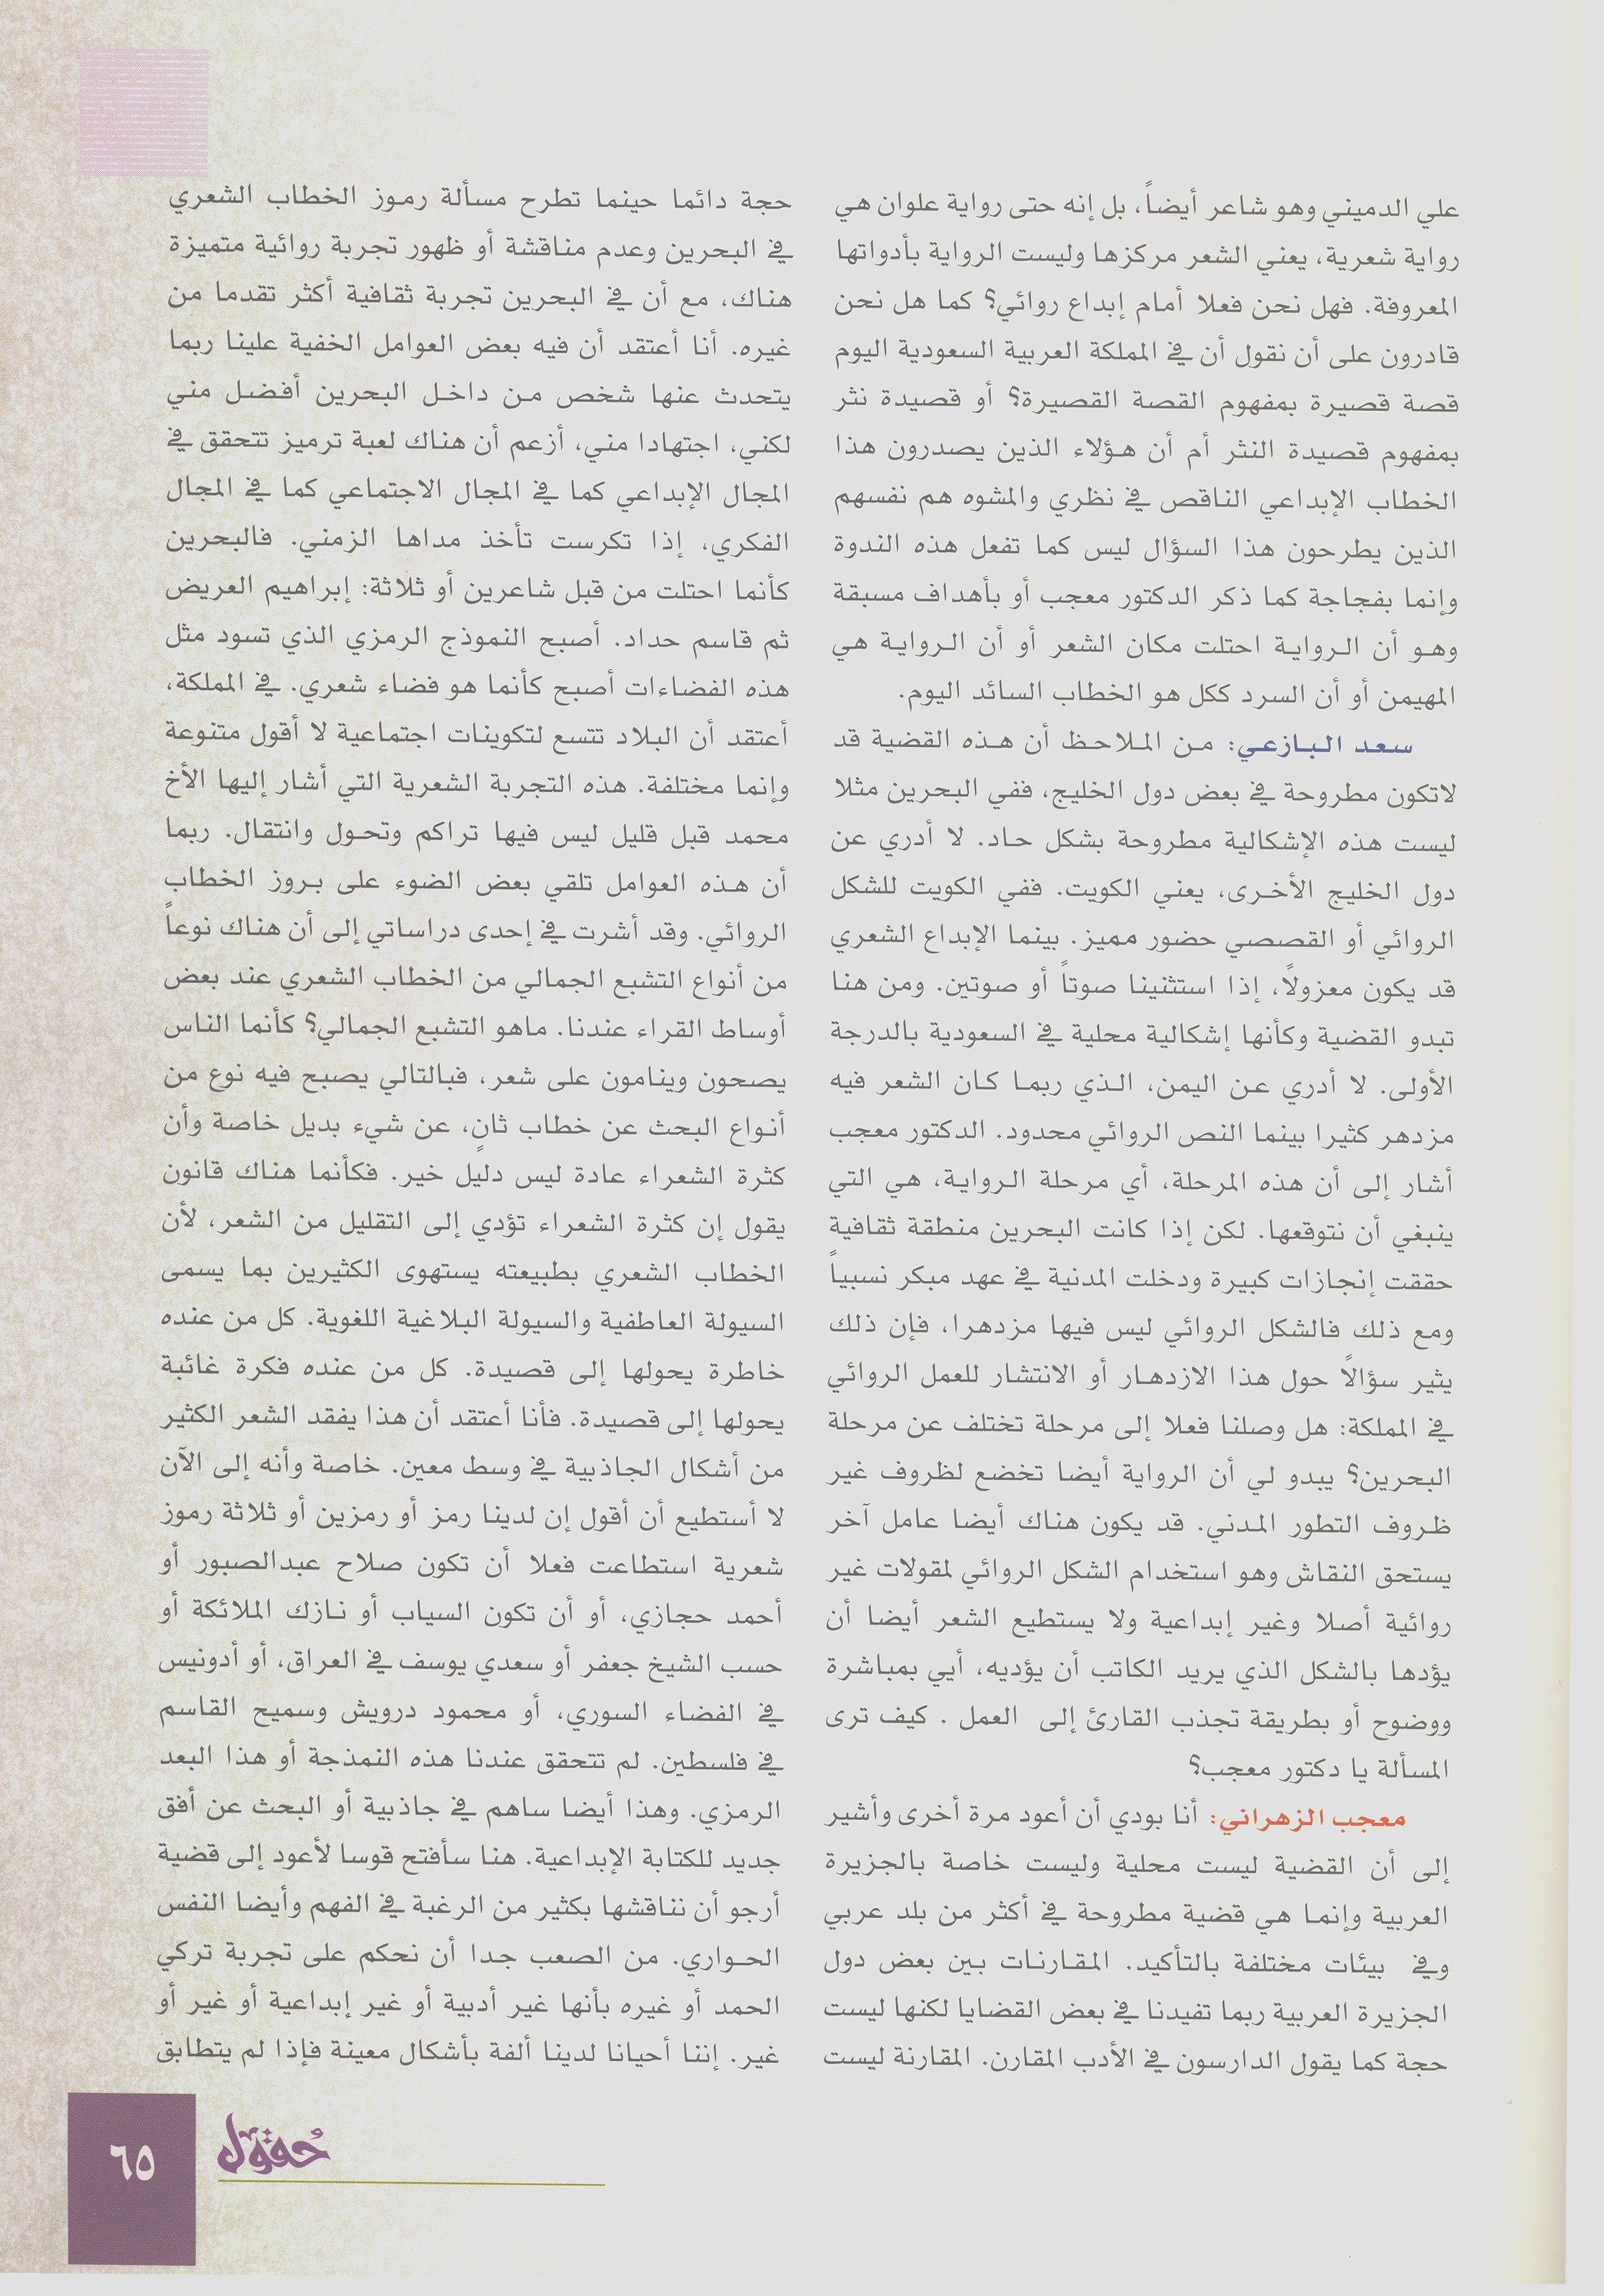 علي الدميني وهو شاعر أيضاً، بل إنه حتى رواية علوان هي
رواية شعرية، يعني الشعر مركزها وليست الرواية بأدواتها
المعروفة. فهل نحن فعلا أمام إبداع روائي؟ كما هل نحن
قادرون على أن نقول أن في المملكة العربية السعودية اليوم
قصة قصيرة بمفهوم القصة القصيرة؟ أو قصيدة نثر
بمفهوم قصيدة النثر أم أن هؤلاء الذين يصدرون هذا
الخطاب الإبداعي الناقص في نظري والمشوه هم نفسهم
الذين يطرحون هذا السؤال ليس كما تفعل هذه الندوة
وإنما بفجاجة كما ذكر الدكتور معجب أو بأهداف مسبقة
وهو أن الرواية احتلت مكان الشعر أو أن الرواية هي
المهيمن أو أن السرد ككل هو الخطاب السائد اليوم.
سعد البازعي: من الملاحظ أن هذه القضية قد
لاتكون مطروحة في بعض دول الخليج، ففي البحرين مثلا
ليست هذه الإشكالية مطروحة بشكل حاد. لا أدري عن
دول الخليج الأخرى، يعني الكويت. ففي الكويت للشكل
الروائي أو القصصي حضور مميز. بينما الإبداع الشعري
قد يكون معزولاً، إذا استثنينا صوتاً أو صوتين. ومن هنا
تبدو القضية وكأنها إشكالية محلية في السعودية بالدرجة
الأولى. لا أدري عن اليمن، الذي ربما كان الشعر فيه
مزدهر كثيرا بينما النص الروائي محدود. الدكتور معجب
أشار إلى أن هذه المرحلة، أي مرحلة الرواية، هي التي
ينبغي أن نتوقعها. لكن إذا كانت البحرين منطقة ثقافية
حققت إنجازات كبيرة ودخلت المدنية في عهد مبكر نسبياً
ومع ذلك فالشكل الروائي ليس فيها مزدهرا، فإن ذلك
يثير سؤالاً حول هذا الازدهار أو الانتشار للعمل الروائي
في المملكة: هل وصلنا فعلا إلى مرحلة تختلف عن مرحلة
البحرين؟ يبدو لي أن الرواية أيضا تخضع لظروف غير
ظروف التطور المدني. قد يكون هناك أيضا عامل آخر
يستحق النقاش وهو استخدام الشكل الروائي لمقولات غير
روائية أصلا وغير إبداعية ولا يستطيع الشعر أيضا أن
يؤدها بالشكل الذي يريد الكاتب أن يؤديه، أيي بمباشرة
ووضوح أو بطريقة تجذب القارئ إلى العمل . كيف ترى
المسألة يا دكتور معجب؟
معجب الزهراني: أنا بودي أن أعود مرة أخرى وأشير
إلى أن القضية ليست محلية وليست خاصة بالجزيرة
العربية وإنما هي قضية مطروحة في أكثر من بلد عربي
وفي بيئات مختلفة بالتأكيد. المقارنات بين بعض دول
الجزيرة العربية ربما تفيدنا في بعض القضايا لكنها ليست
حجة كما يقول الدارسون في الأدب المقارن. المقارنة ليست
حجة دائما حينما تطرح مسألة رموز الخطاب الشعري
في البحرين وعدم مناقشة أو ظهور تجربة روائية متميزة
هناك، مع أن في البحرين تجربة ثقافية أكثر تقدما من
غيره. أنا أعتقد أن فيه بعض العوامل الخفية علينا ربما
يتحدث عنها شخص من داخل البحرين أفضل مني
لكني، اجتهادا مني، أزعم أن هناك لعبة ترميز تتحقق في
المجال الإبداعي كما في المجال الاجتماعي كما في المجال
الفكري، إذا تكرست تأخذ مداها الزمني. فالبحرين
كأنما احتلت من قبل شاعرين أو ثلاثة: إبراهيم العريض
ثم قاسم حداد. أصبح النموذج الرمزي الذي تسود مثل
هذه الفضاءات أصبح كأنما هو فضاء شعري. في المملكة،
أعتقد أن البلاد تتسع لتكوينات اجتماعية لا أقول متنوعة
وإنما مختلفة. هذه التجربة الشعرية التي أشار إليها الأخ
محمد قبل قليل ليس فيها تراكم وتحول وانتقال. ربما
أن هذه العوامل تلقي بعض الضوء على بروز الخطاب
الروائي. وقد أشرت في إحدى دراساتي إلى أن هناك نوعاً
من أنواع التشبع الجمالي من الخطاب الشعري عند بعض
أوساط القراء عندنا. ماهو التشبع الجمالي؟ كأنما الناس
يصحون وينامون على شعر، فبالتالي يصبح فيه نوع من
أنواع البحث عن خطاب ثانٍ، عن شيء بديل خاصة وأن
كثرة الشعراء عادة ليس دليل خير. فكأنما هناك قانون
يقول إن كثرة الشعراء تؤدي إلى التقليل من الشعر، لأن
الخطاب الشعري بطبيعته يستهوى الكثيرين بما يسمى
السيولة العاطفية والسيولة البلاغية اللغوية. كل من عنده
خاطرة يحولها إلى قصيدة. كل من عنده فكرة غائبة
يحولها إلى قصيدة. فأنا أعتقد أن هذا يفقد الشعر الكثير
من أشكال الجاذبية في وسط معين. خاصة وأنه إلى الآن
لا أستطيع أن أقول إن لدينا رمز أو رمزين أو ثلاثة رموز
شعرية استطاعت فعلا أن تكون صلاح عبدالصبور أو
أحمد حجازي، أو أن تكون السياب أو نازك الملائكة أو
حسب الشيخ جعفر أو سعدي يوسف في العراق، أو أدونيس
في الفضاء السوري، أو محمود درويش وسميح القاسم
في فلسطين. لم تتحقق عندنا هذه النمذجة أو هذا البعد
الرمزي. وهذا أيضا ساهم في جاذبية أو البحث عن أفق
جديد للكتابة الإبداعية. هنا سأفتح قوسا لأعود إلى قضية
أرجو أن نناقشها بكثير من الرغبة في الفهم وأيضا النفس
الحواري. من الصعب جدا أن نحكم على تجربة تركي
الحمد أو غيره بأنها غير أدبية أو غير إبداعية أو غير أو
غير. إننا أحيانا لدينا ألفة بأشكال معينة فإذا لم يتطابق
حُقول
٦٥